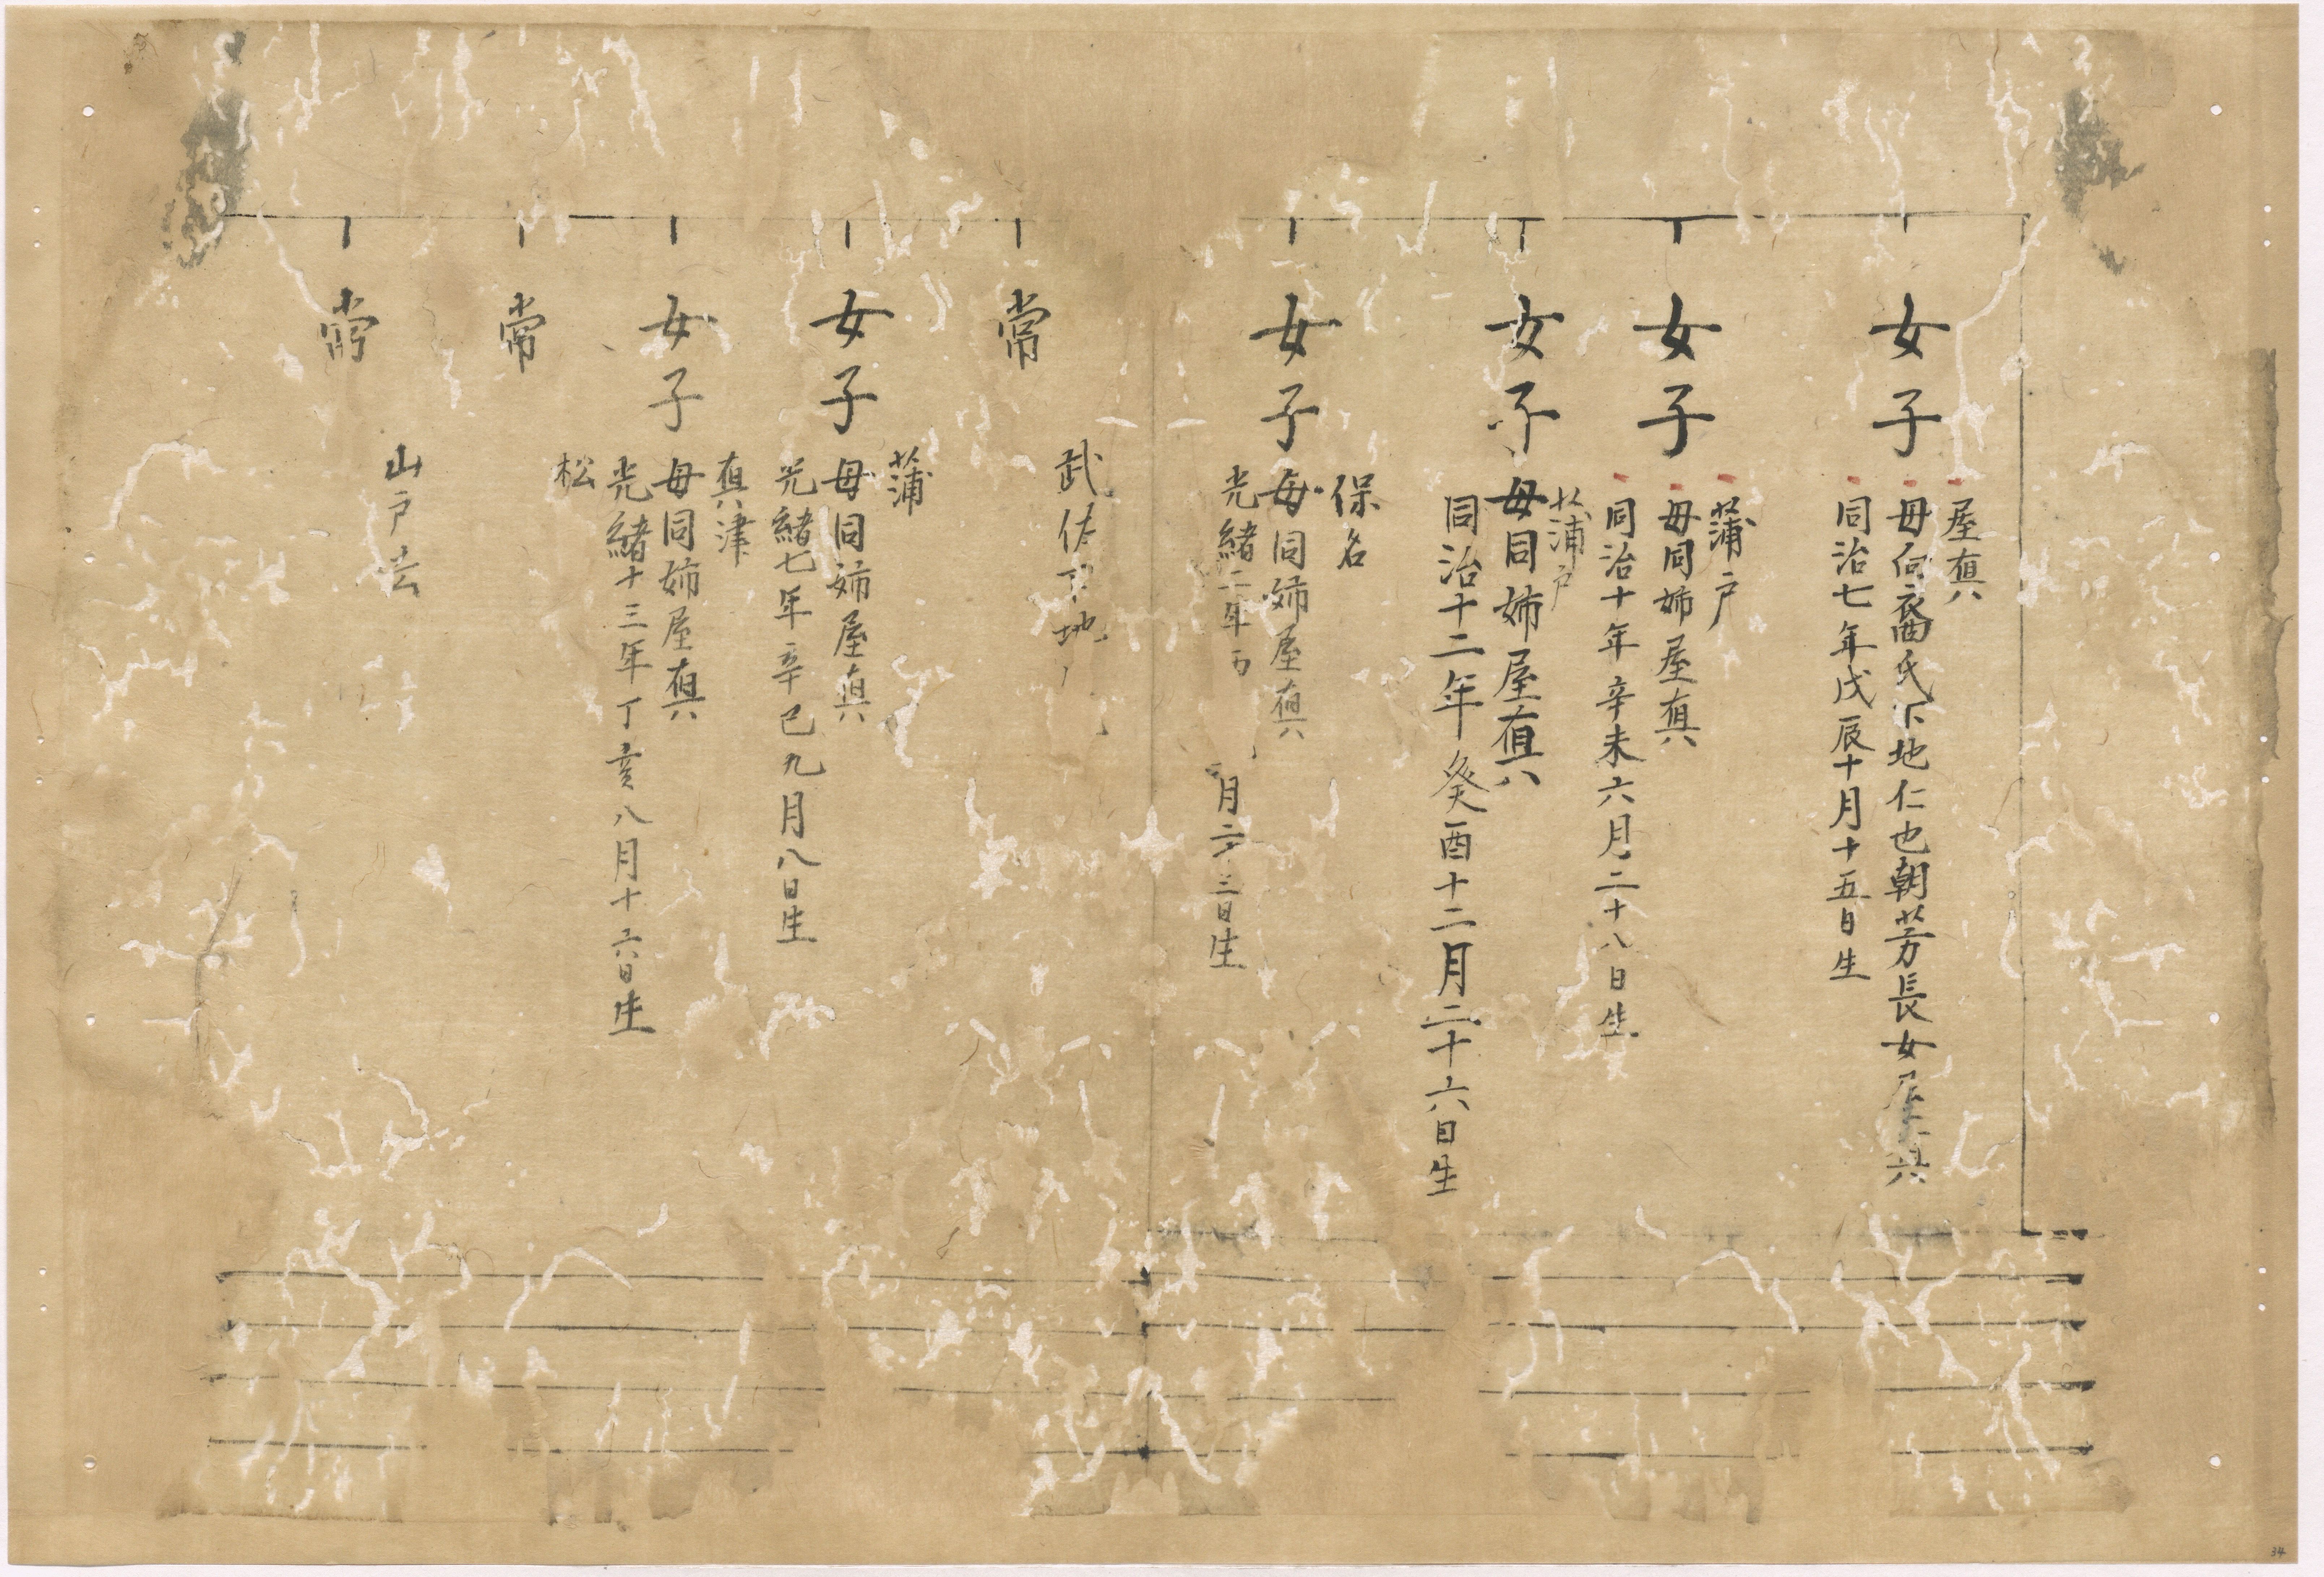 女子
屋真
母向裔氏下地仁也朝芳長女屋真
同治七年戊辰十月十五日生
女子
蒲戸
母同姉屋真
同治十年辛未六月二十八日生
女子
蒲戸
母同姉屋真
同治十二年癸酉十二月二十六日生
女子
保名
母同姉屋真
光緒二年丙
月二十三日生
常
武佐下地
女子
蒲
母同姉屋真
光緒七年辛巳九月八日生
女子
真津
母同姉屋真
光緒十三年丁亥八月十六日生
常
松
常
山戸
34